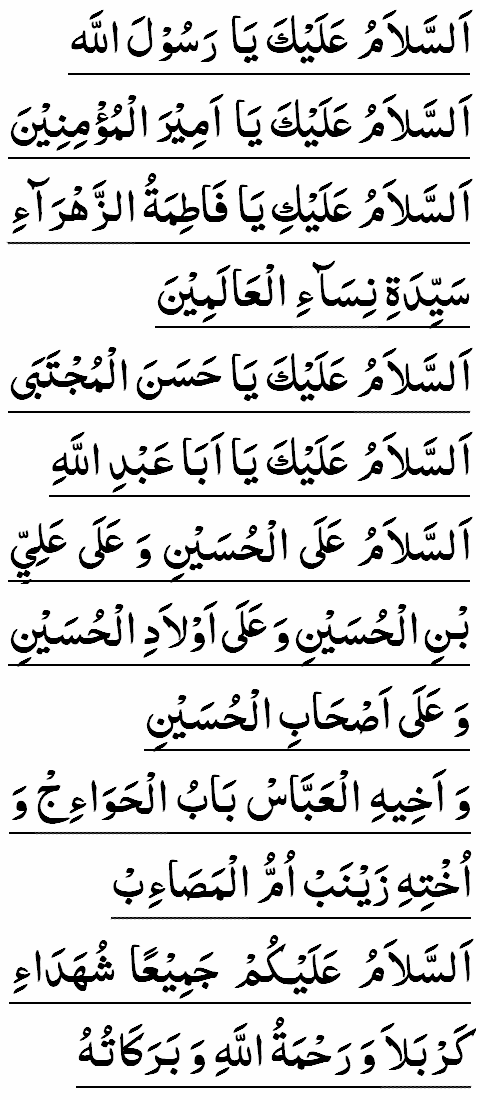 اَلسَّلاَمُ عَلَيْكَ يَا رَسُوْلَ اللَّه
اَلسَّلاَمُ عَلَيْكَ يَا اَمِيْرَ الْمُؤْمِنِيْنَ
اَلسَّلاَمُ عَلَيْكِ يَا فَاطِمَةُ الزَّهْرَآءِ
سَيِّدَةِ نِسَآءِ الْعَالَمِيْنَ
اَلسَّلاَمُ عَلَيْكَ يَا حَسَنَ الْمُجْتَبَى
اَلسَّلاَمُ عَلَيْكَ يَا اَبَا عَبْدِ اللَّهِ
اَلسَّلاَمُ عَلَى الْحُسَيْنِ وَ عَلَى عَلِيِّ
بْنِ الْحُسَيْنِ وَ عَلَى اَوْلاَدِ الْحُسَيْنِ
وَ عَلَى اَصْحَابِ الْحُسَيْنِ
وَ اَخِيهِ الْعَبَّاسْ بَابُ الْحَوَاءِجْ وَ
اُخْتِهِ زَيْنَبْ اُمُّ الْمَصَاءِبْ
اَلسَّلاَمُ عَلَيْكُمْ جَمِيْعًا شُهَدَاءِ
كَرْبَلاَ وَ رَحْمَةُ اللَّهِ وَ بَرَكَاتُهُ